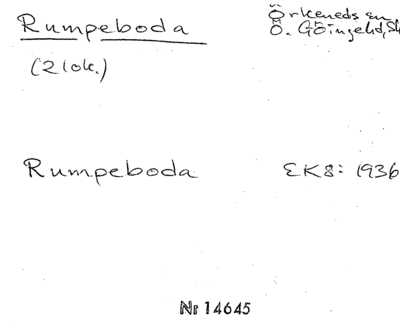 Rumpeboda
Örkeneds sn
(2 lok.)
Ö. Göingehd, Sk
Rumpeboda
EKS: 1936
Nr 14645